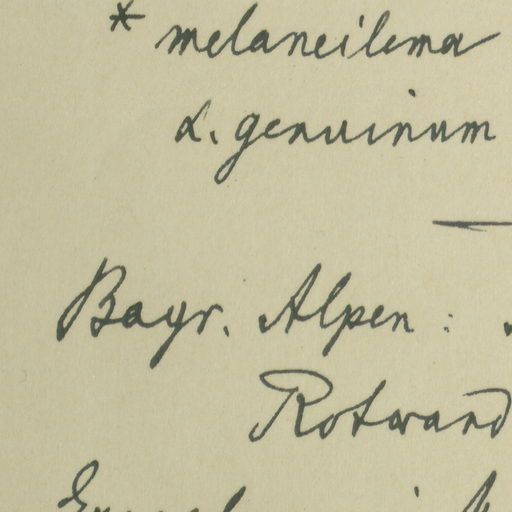 * melaneilema
α. genuinum
Bayr. Alpen :
Rotwand